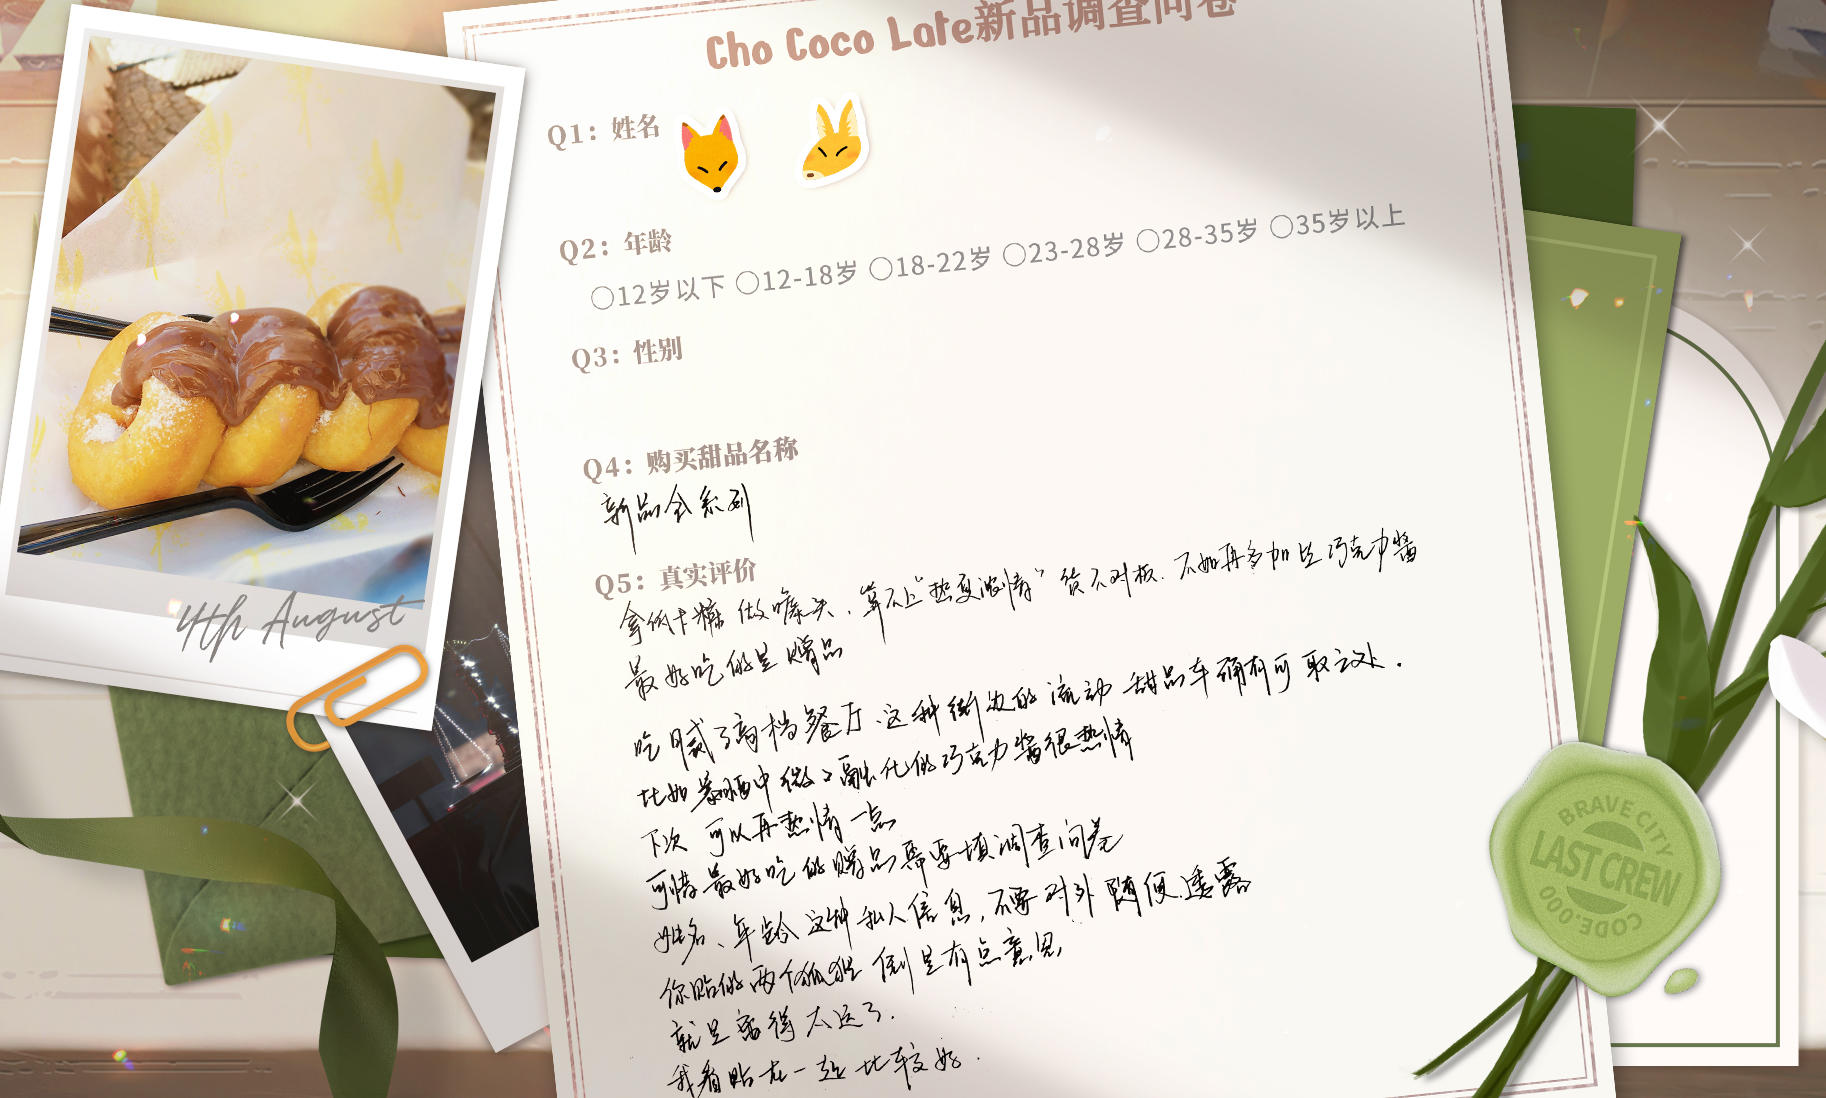 Cho Coco Late新品调查问卷
Q1：姓名
Q2：年龄
○12岁以下 ○12-18岁 ○18-22岁 ○23-28岁 ○28-35岁 ○35岁以上
Q3：性别
Q4：购买甜品名称
新品全系列
Q5：真实评价
拿低卡糖做噱头，算不上“热夏浓情”货不对板．不如再多加些巧克力酱
最好吃的是赠品
吃腻了高档餐厅．这种街边的流动甜品车确有可取之处．
比如暴晒中微微融化的巧克力酱很热情
下次可以再热情一点
可惜最好吃的赠品需要填调查问卷
姓名、年龄这种私人信息，不要对外随便透露
你贴的两个狐狸倒是有点意思
就是离得太远了．
我看贴在一起比较好．
4th August
BRAVE CITY
LAST CREW
CODE.000